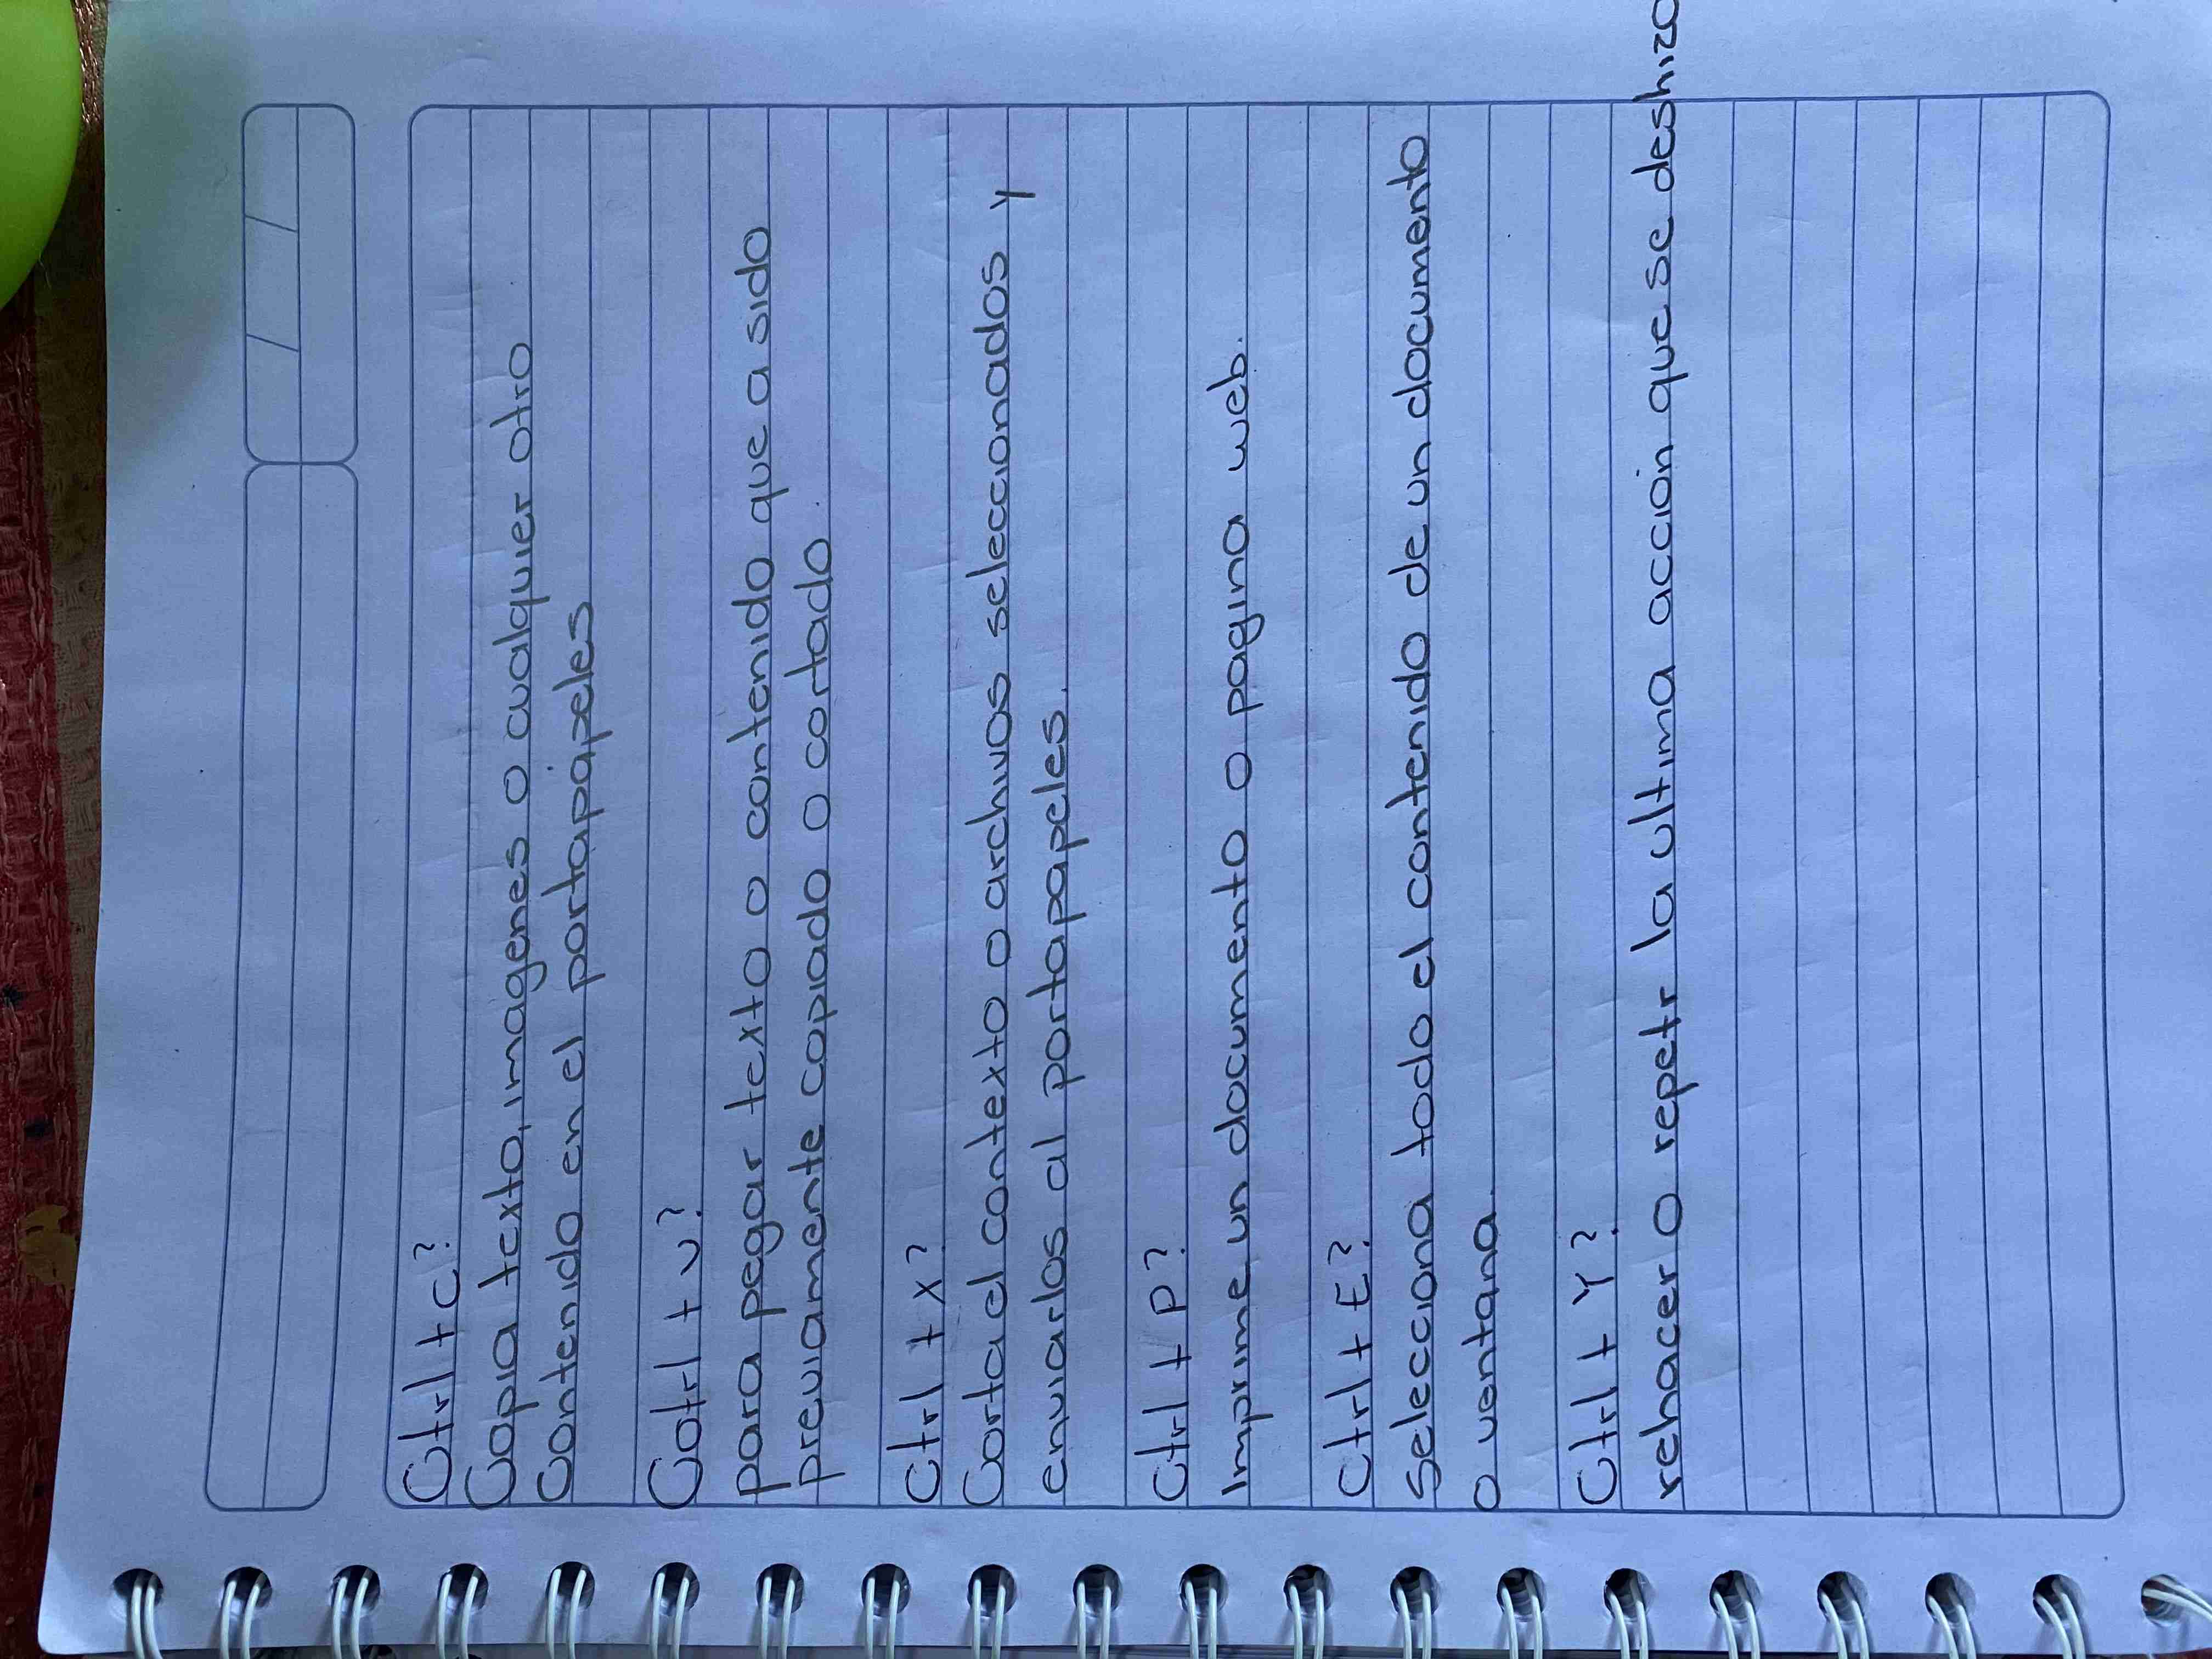 Ctrl + C?
Copia texto, imagenes o cualquier otro
Contenido en el portapapeles
Cotrl + v?
para pegar texto o contenido que a sido
previamente copiado o cortado
Ctrl + X?
Corta el contexto o archivos seleccionados y
enviarlos al portapapeles.
Ctrl + P?
Imprime un documento o pagina web.
Ctrl + E?
Selecciona todo el contenido de un documento
o ventana
Ctrl + Y?
rehacer o repetir la ultima acción que se deshizo